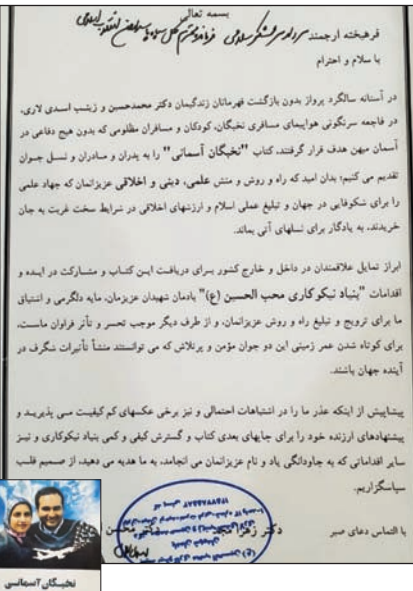 بسمه تعالی
فرهیخته ارجمند سردار سرلشکر سلامی فرمانده محترم کل سپاه پاسداران انقلاب اسلامی
با سلام و احترام
در آستانه سالگرد پرواز بدون بازگشت قهرمانان زندگیمان دکتر محمدحسین و زینب اسدی لاری،
در فاجعه سرنگونی هواپیمای مسافری نخبگان، کودکان و مسافران مظلومی که بدون هیچ دفاعی در
آسمان میهن هدف قرار گرفتند، کتاب "نخبگان آسمانی" را به پدران و مادران و نسل جوان
تقدیم می کنیم؛ بدان امید که راه و روش و منش علمی، دینی و اخلاقی عزیزانمان که جهاد علمی
را برای شکوفایی در جهان و تبلیغ عملی اسلام و ارزشهای اخلاقی در شرایط سخت غربت به جان
خریدند، به یادگار برای نسلهای آتی بماند.
ابراز تمایل علاقمندان در داخل و خارج کشور برای دریافت این کتاب و مشارکت در ایده و
اقدامات "بنیاد نیکوکاری محب الحسین (ع)" یادمان شهیدان عزیزمان، مایه دلگرمی و اشتیاق
ما برای ترویج و تبلیغ راه و روش عزیزانمان، و از طرف دیگر موجب تحسر و تأثر فراوان ماست،
برای کوتاه شدن عمر زمینی این دو جوان مؤمن و پرتلاش که می توانستند منشأ تأثیرات شگرف در
آینده جهان باشند.
پیشاپیش از اینکه عذر ما را در اشتباهات احتمالی و نیز برخی عکسهای کم کیفیت می پذیرید و
پیشنهادهای ارزنده خود را برای چاپهای بعدی کتاب و گسترش کیفی و کمی بنیاد نیکوکاری و نیز
سایر اقداماتی که به جاودانگی یاد و نام عزیزانمان می انجامد، به ما هدیه می دهید، از صمیم قلب
سپاسگزاریم.
با التماس دعای صبر
دکتر محسن
دکتر زهرا مجد
نخبگان آسمانی